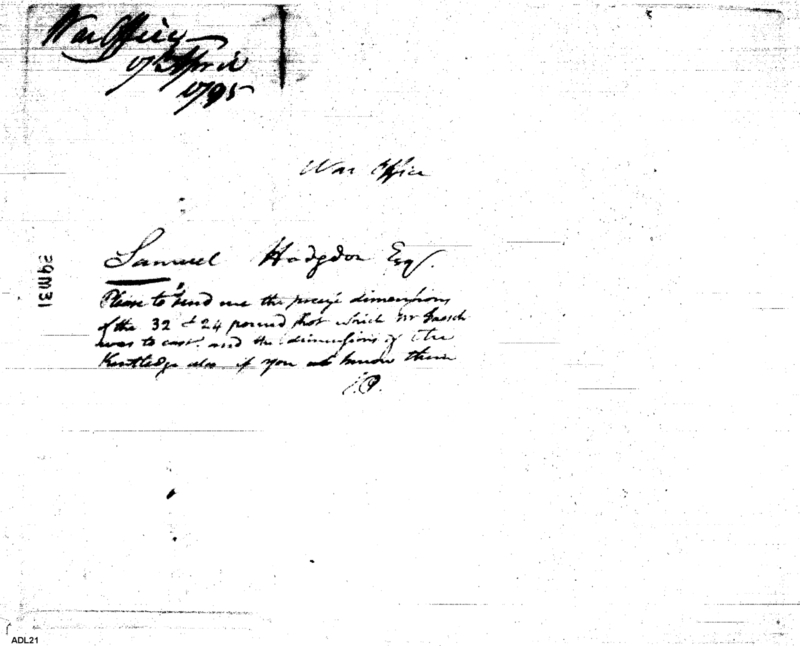 War Office
17 April
1795
War Office
Samuel Hodgdon Esq.
Please to send me the precise dimensions
of the 32 & 24 pound shot which Mr
was to cast. and the dimensions of the
Kentledge also if you know them
3QM31
ADL21